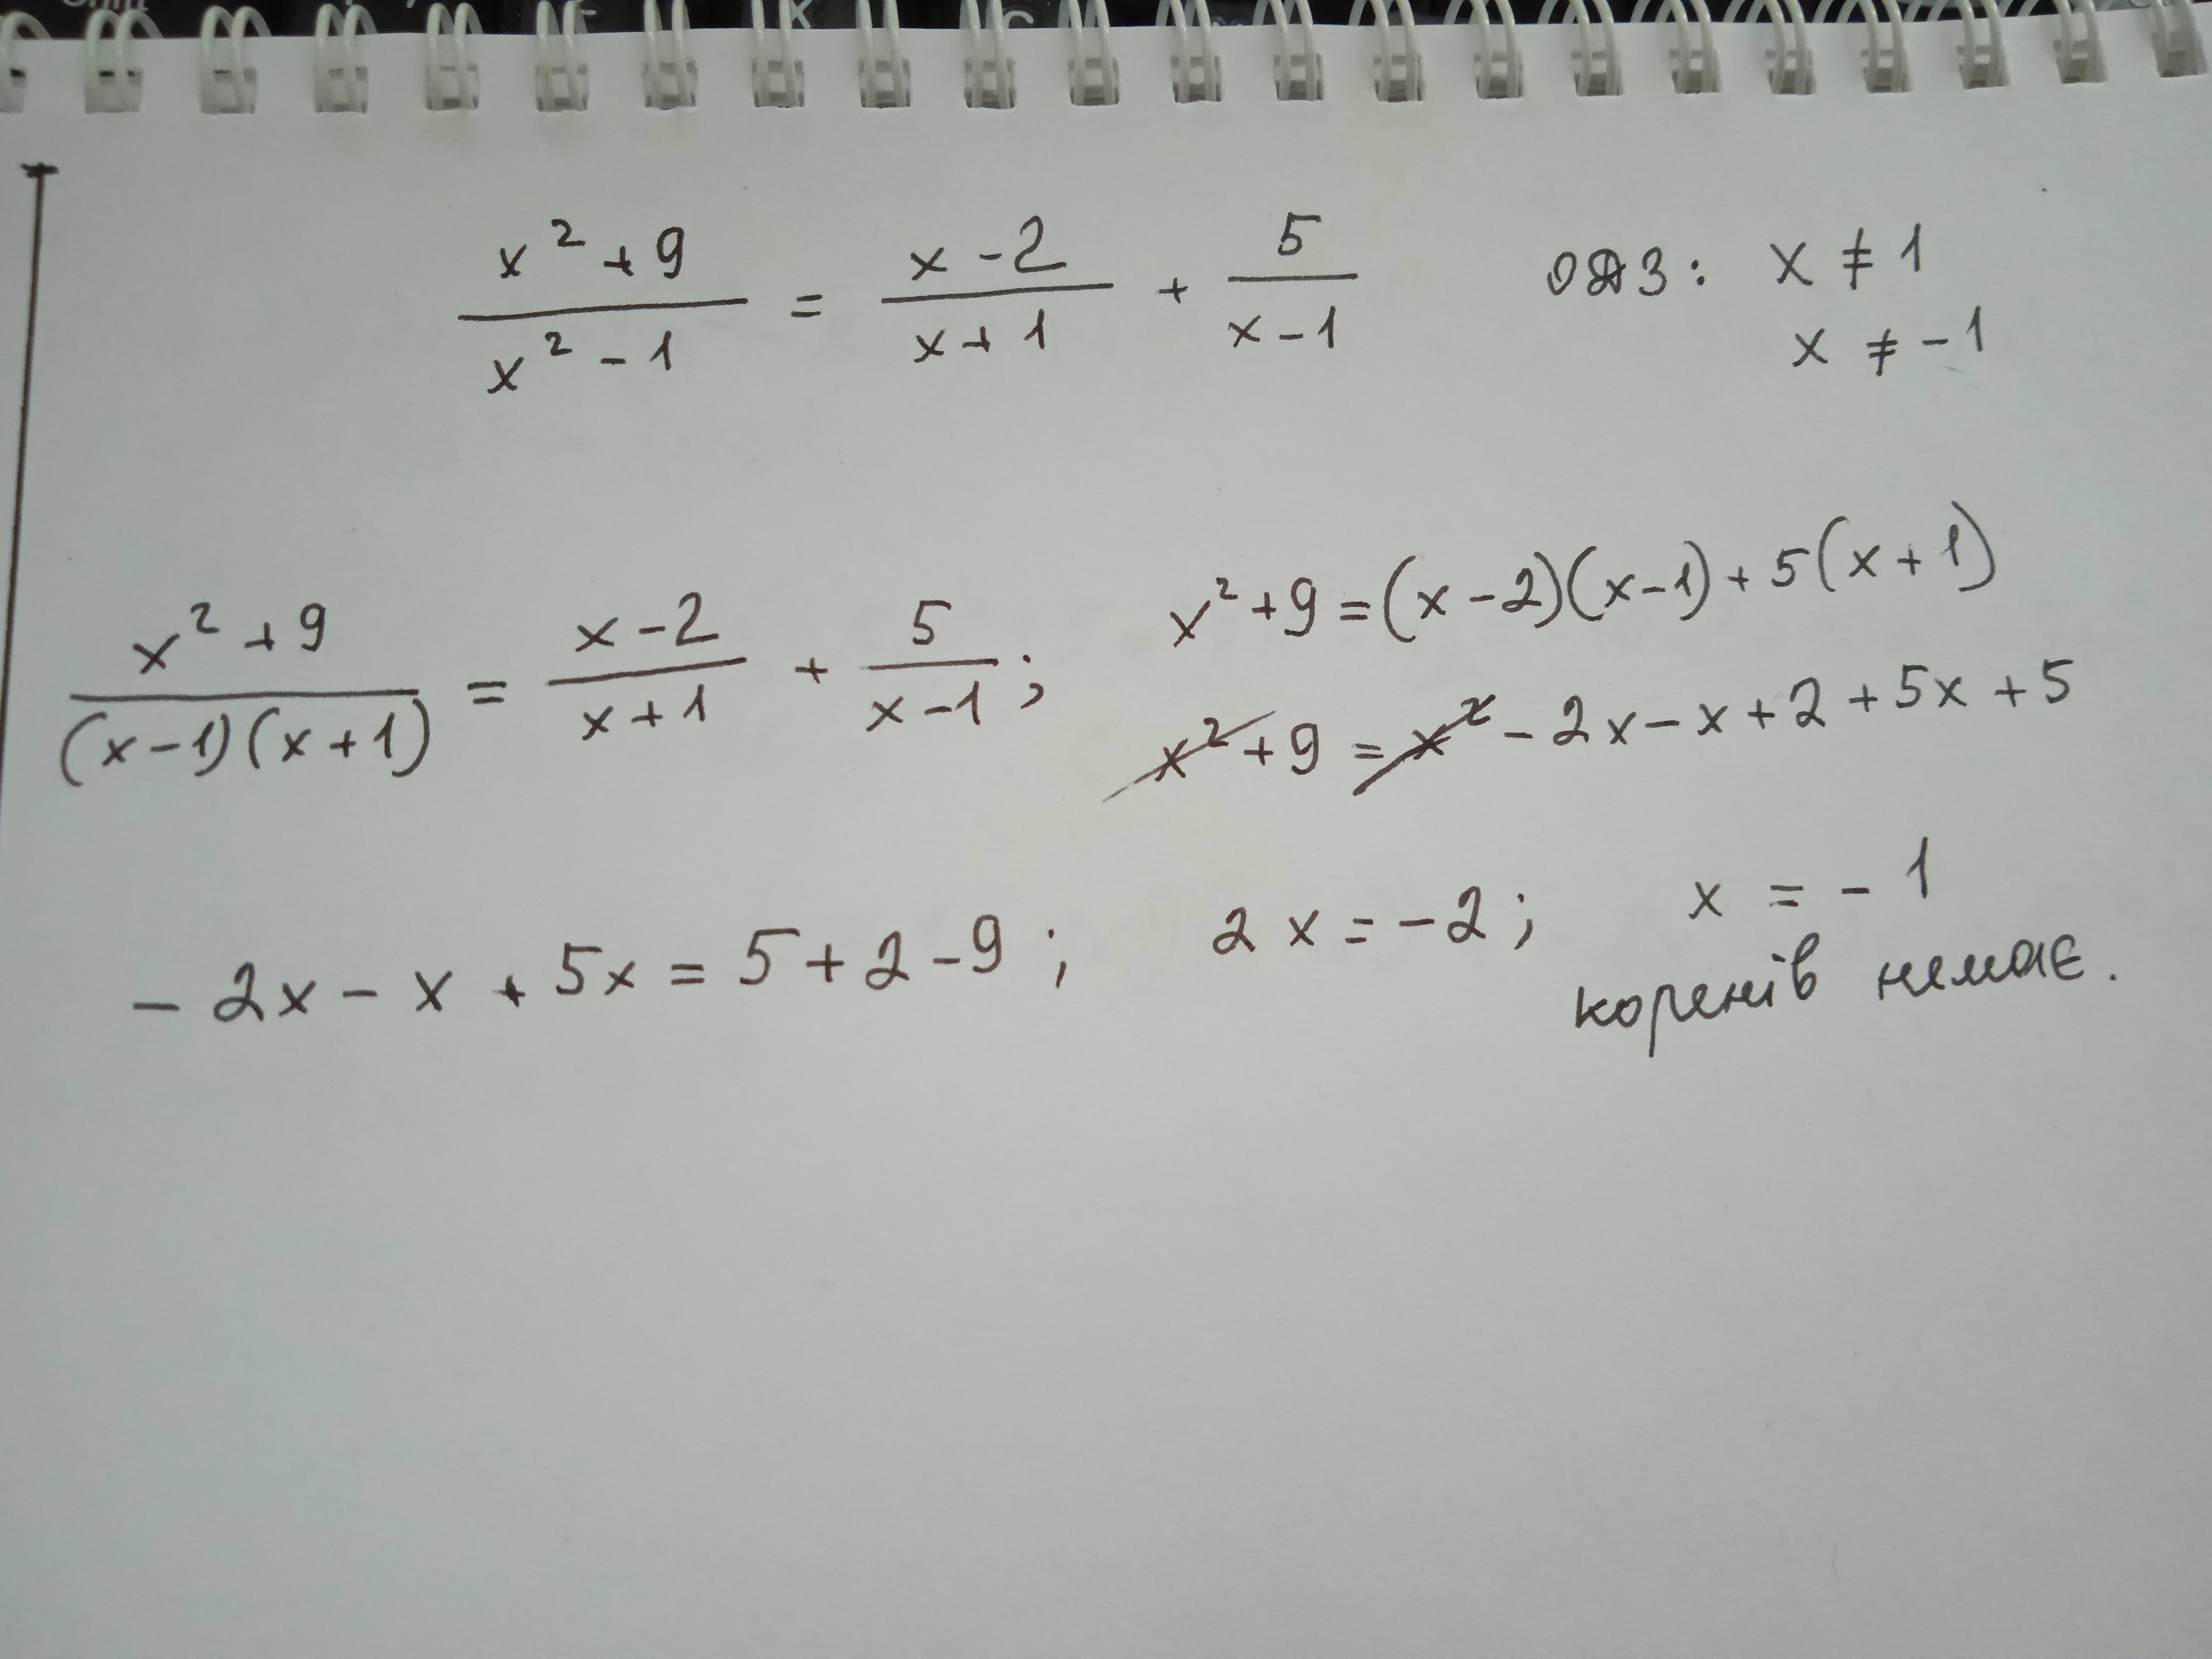 x² + 9 / x² - 1 = x - 2 / x + 1 + 5 / x - 1 ОДЗ: x ≠ 1
x ≠ -1
x² + 9 / (x - 1)(x + 1) = x - 2 / x + 1 + 5 / x - 1 ;
x² + 9 = (x - 2)(x - 1) + 5(x + 1)
x² + 9 = x² - 2x - x + 2 + 5x + 5
- 2x - x + 5x = 5 + 2 - 9 ; 2x = -2 ; x = - 1
коренів немає.